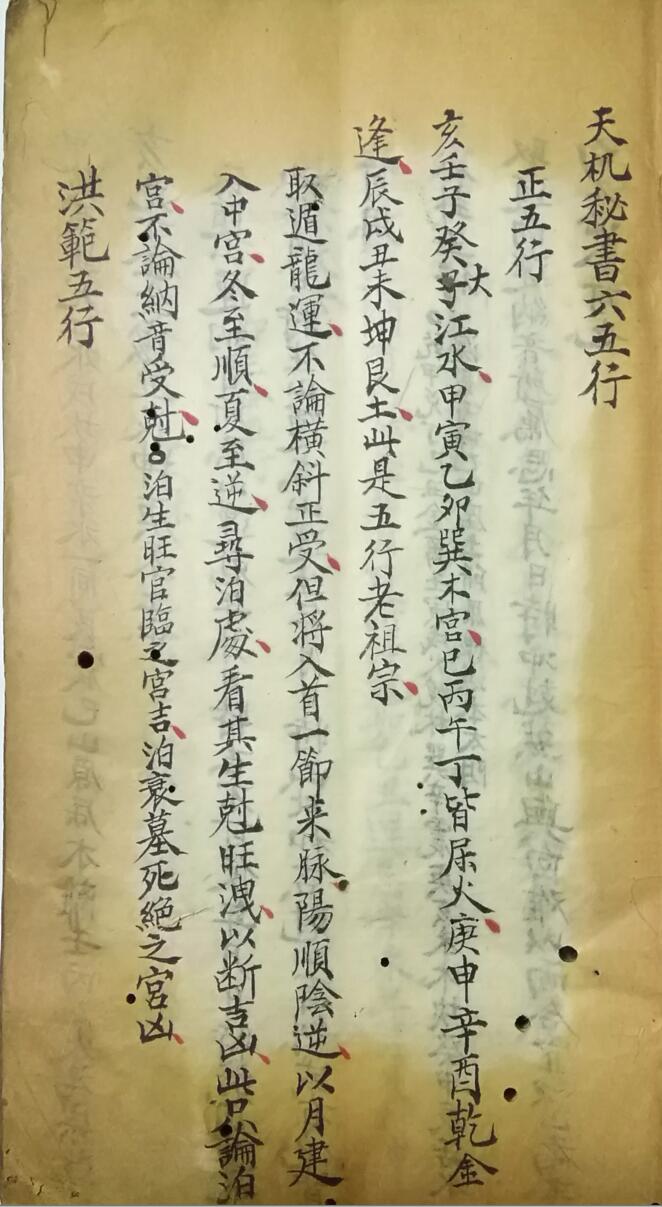 天机秘書六五行
正五行
亥壬子癸大江水、甲寅乙卯巽木宮、巳丙午丁皆属火、庚申辛酉乾金
逢、辰戌丑未坤艮土、此是五行老祖宗、
取遁龍運、不論橫斜正受、但将入首一節来脉、陽順陰逆、以月建
入中宮、冬至順、夏至逆、尋泊處、看其生尅旺洩、以断吉凶、此只論泊
宮、不論納音受尅、泊生旺官臨之宮吉、泊衰墓死絶之宮凶、
洪範五行